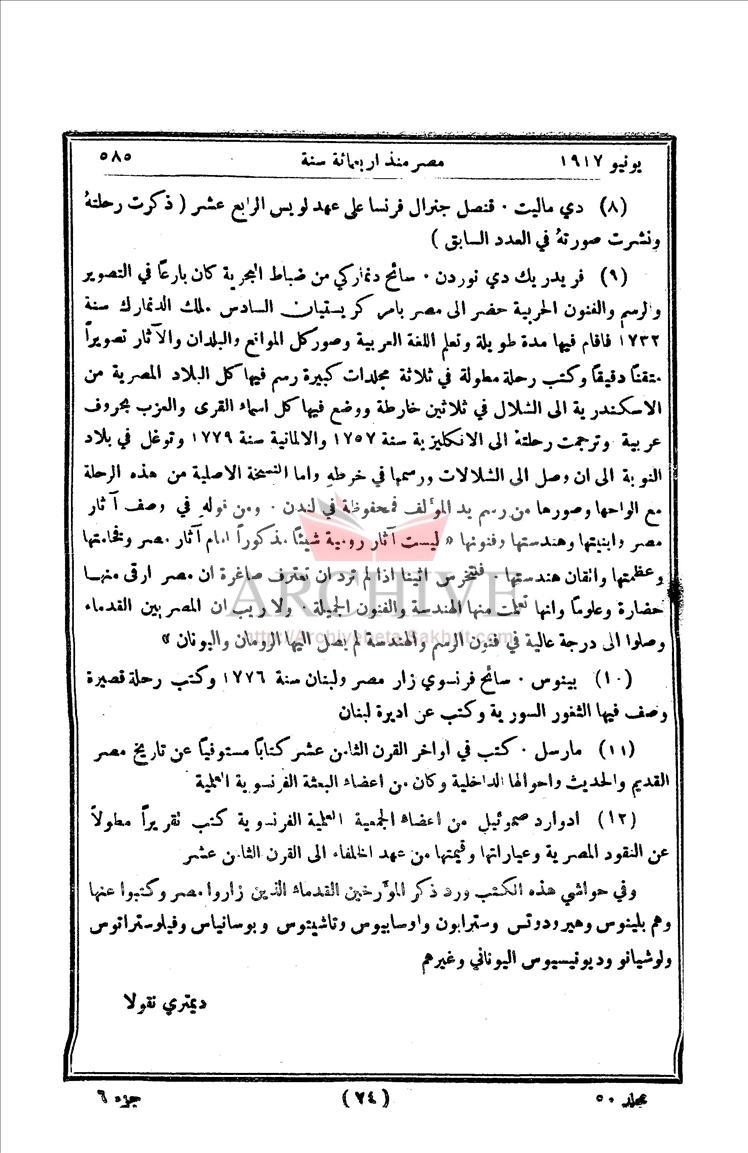 يونيو ١٩١٧ مصر منذ اربعمائة سنة ٥٨٥
(٨) دي ماليت ٠ قنصل جنرال فرنسا على عهد لويس الرابع عشر ( ذكرت رحلتهُ
ونشرت صورتهُ في العدد السابق )
(٩) فريدريك دي نوردن ٠ سائح دنماركي من ضباط البحرية كان بارعاً في التصوير
والرسم والفنون الحربية حضر الى مصر بامر كريستيان السادس ملك الدنمارك سنة
١٧٣٢ فاقام فيها مدة طويلة وتعلم اللغة العربية وصور كل المواقع والبلدان والآثار تصويراً
متقناً دقيقاً وكتب رحلة مطولة في ثلاثة مجلدات كبيرة رسم فيها كل البلاد المصرية من
الاسكندرية الى الشلال في ثلاثين خارطة ووضع فيها كل اسماء القرى والعزب بحروف
عربية وترجمت رحلتهُ الى الانكليزية سنة ١٧٥٧ والالمانية سنة ١٧٧٩ وتوغل في بلاد
النوبة الى ان وصل الى الشلالات ورسمها في خرطهِ واما النسخة الاصلية من هذه الرحلة
مع الواحها وصورها من رسم يد المؤلف فمحفوظة في لندن ٠ ومن قولهِ في وصف آثار
مصر وابنيتها وهندستها وفنونها « ليست آثار رومية شيئاً مذكوراً امام آثار مصر وفخامتها
وعظمتها واتقان هندستها ٠ فلتخرس اثينا اذا لم ترد ان تعترف صاغرة ان مصر ارقى منها
حضارة وعلوماً وانها تعلمت منها الهندسة والفنون الجميلة ٠ ولا ريب ان المصريين القدماء
وصلوا الى درجة عالية في فنون الرسم والهندسة لم يصل اليها الرومان واليونان »
(١٠) بينوس ٠ سائح فرنسوي زار مصر ولبنان سنة ١٧٧٦ وكتب رحلة قصيرة
وصف فيها الثغور السورية وكتب عن اديرة لبنان
(١١) مارسل ٠ كتب في اواخر القرن الثامن عشر كتاباً مستوفياً عن تاريخ مصر
القديم والحديث واحوالها الداخلية وكان من اعضاء البعثة الفرنسوية العلمية
(١٢) ادوارد صموئيل من اعضاء الجمعية العلمية الفرنسوية كتب تقريراً مطولاً
عن النقود المصرية وعياراتها وقيمتها من عهد الخلفاء الى القرن الثامن عشر
وفي حواشي هذه الكتب ورد ذكر المؤرخين القدماء الذين زاروا مصر وكتبوا عنها
وهم بلينوس وهيرودوتس وسترابون واوسابيوس وتاشيتوس وبوسانياس وفيلوستراتوس
ولوشيانو وديونيسيوس اليوناني وغيرهم
ديمتري نقولا
مجلد ٥٠ (٧٤) جزء ٦
ARCHIVE
http://Archivebeta.Sakhrit.com